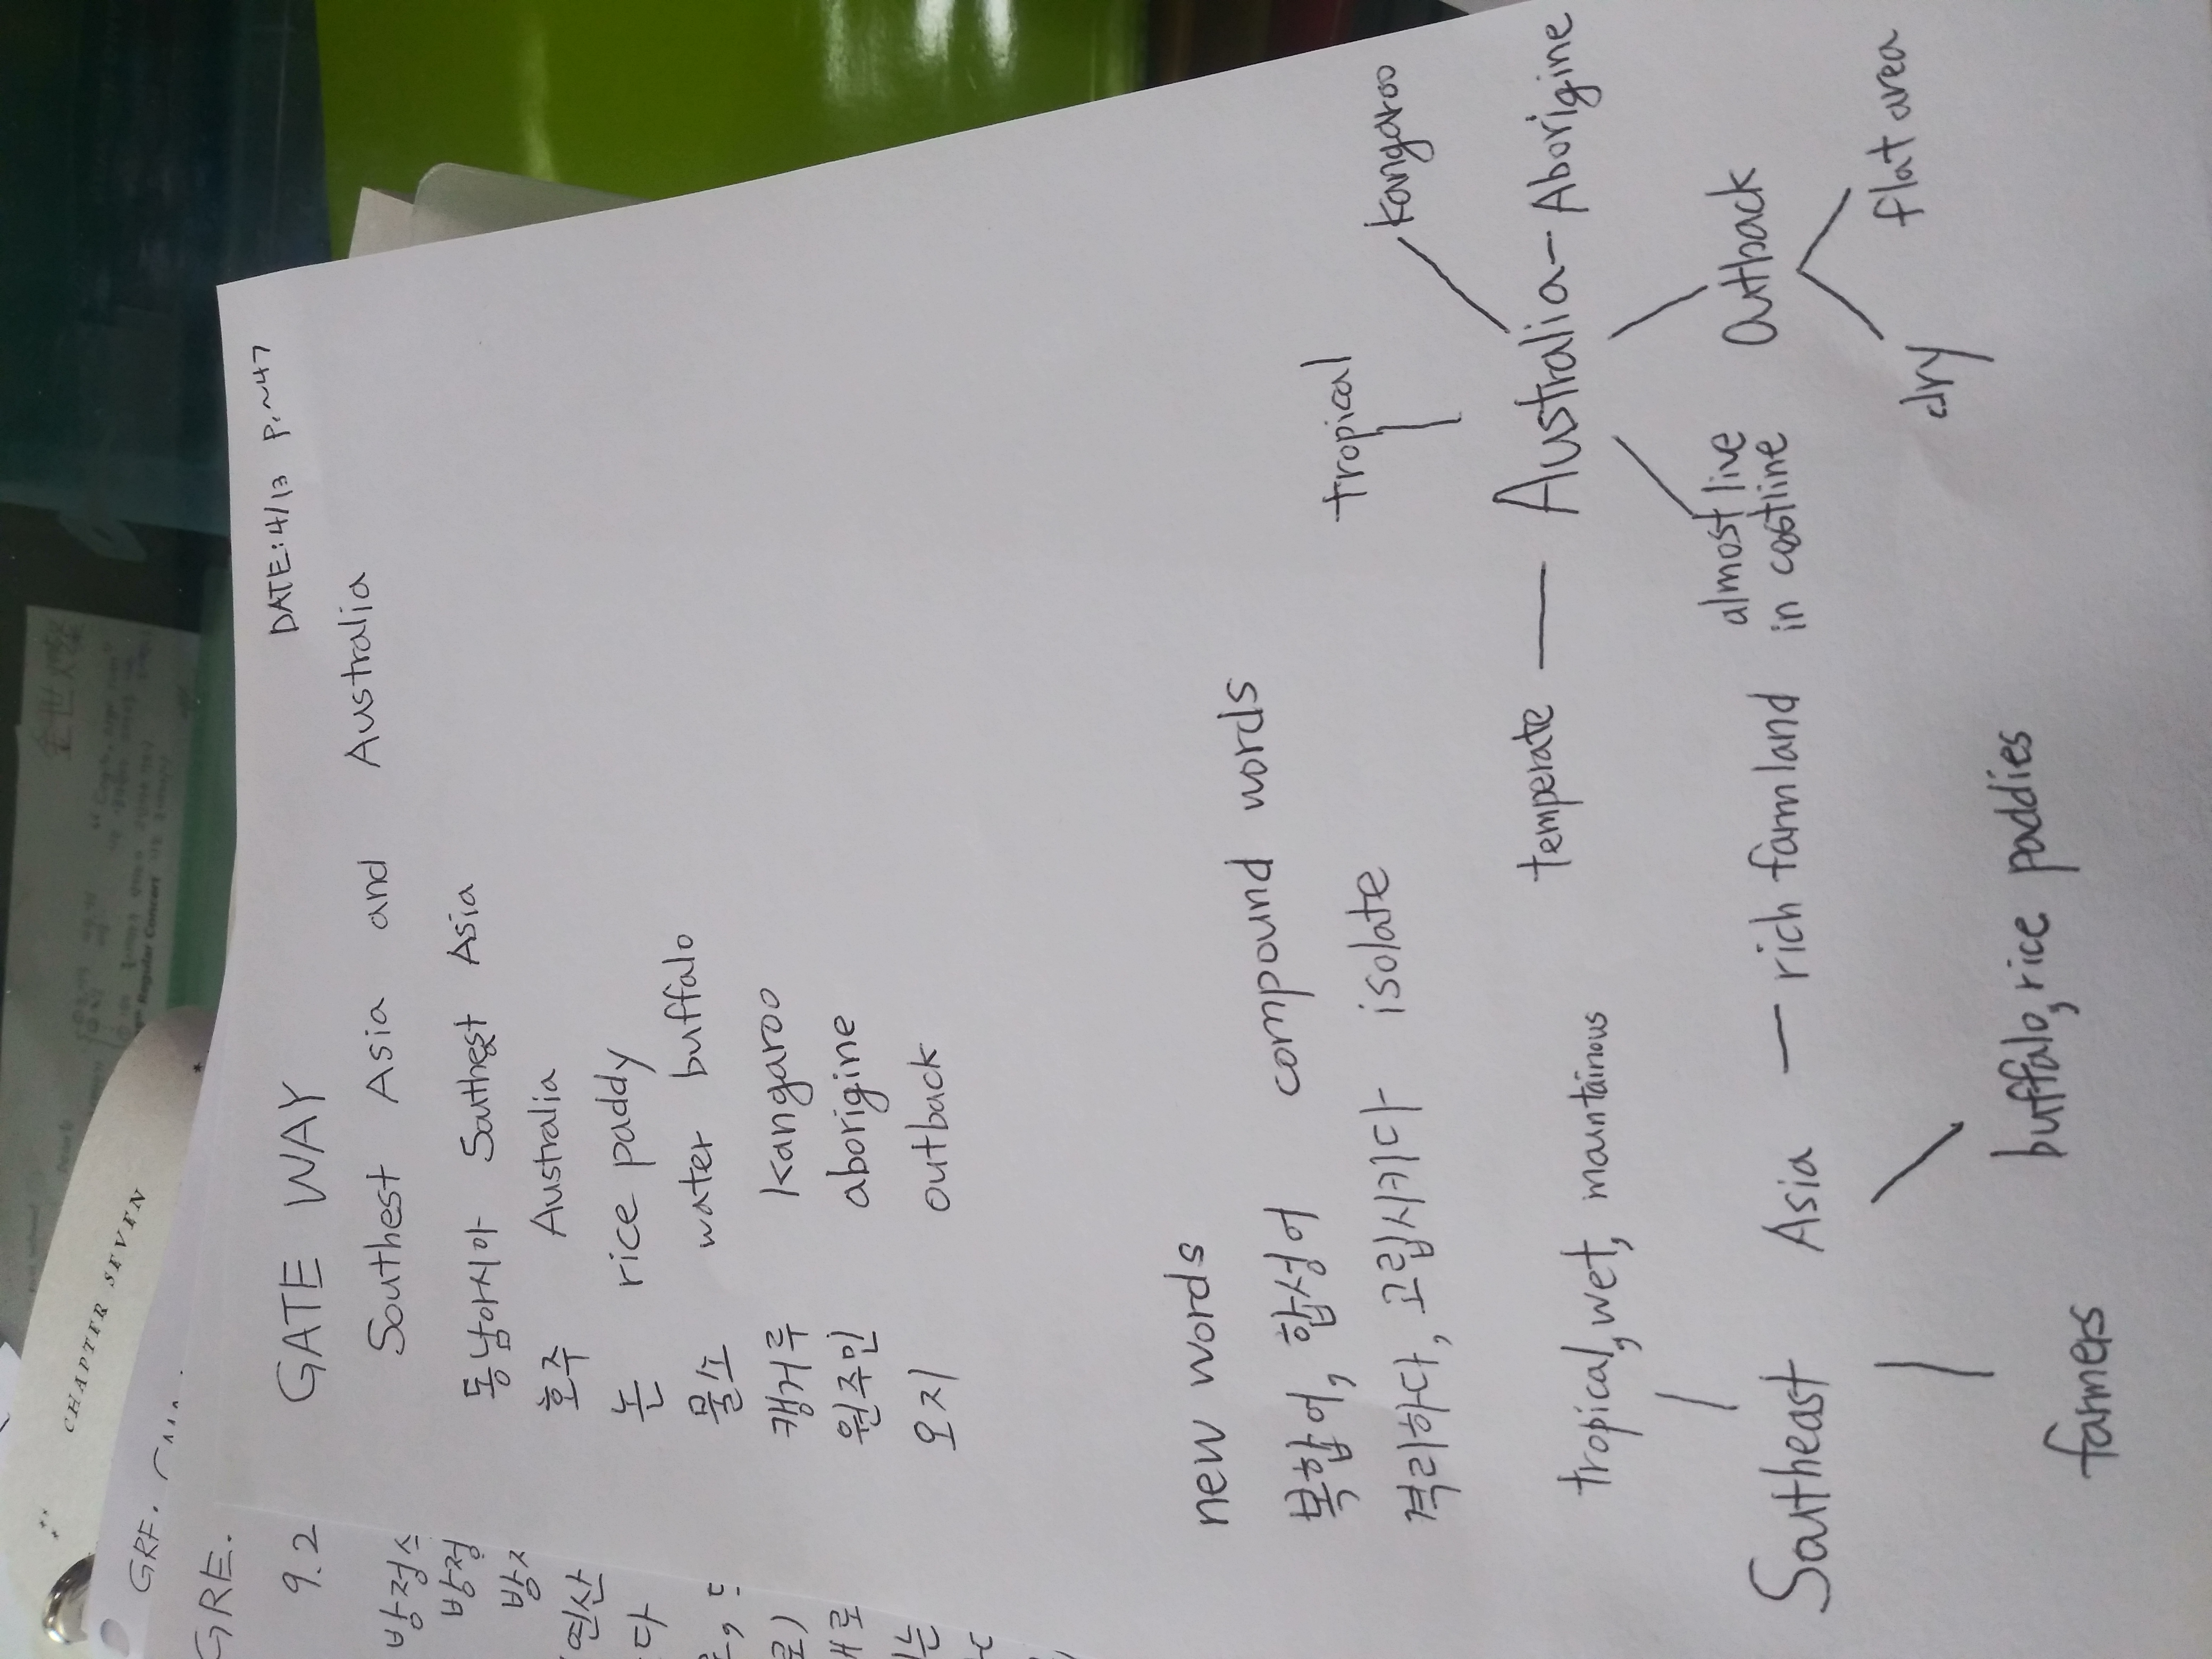 CHAPTER SEVEN
GRE.
GRE.
9.2
방정
방정
연산
다
DATE: 4/13 P.~47
GATE WAY
Southest Asia and Australia
동남아시아 Southest Asia
호주 Australia
논 rice paddy
물소 water buffalo
캥거루 kangaroo
원주민 aborigine
오지 outback
new words
복합어, 합성어 compound words
격리하다, 고립시키다 isolate
tropical
kangaroo
temperate — Australia - Aborigine
almost live
in costline
outback
dry
flat area
tropical, wet, mountainous
Southeast Asia — rich farmland
farmers
buffalo, rice paddies